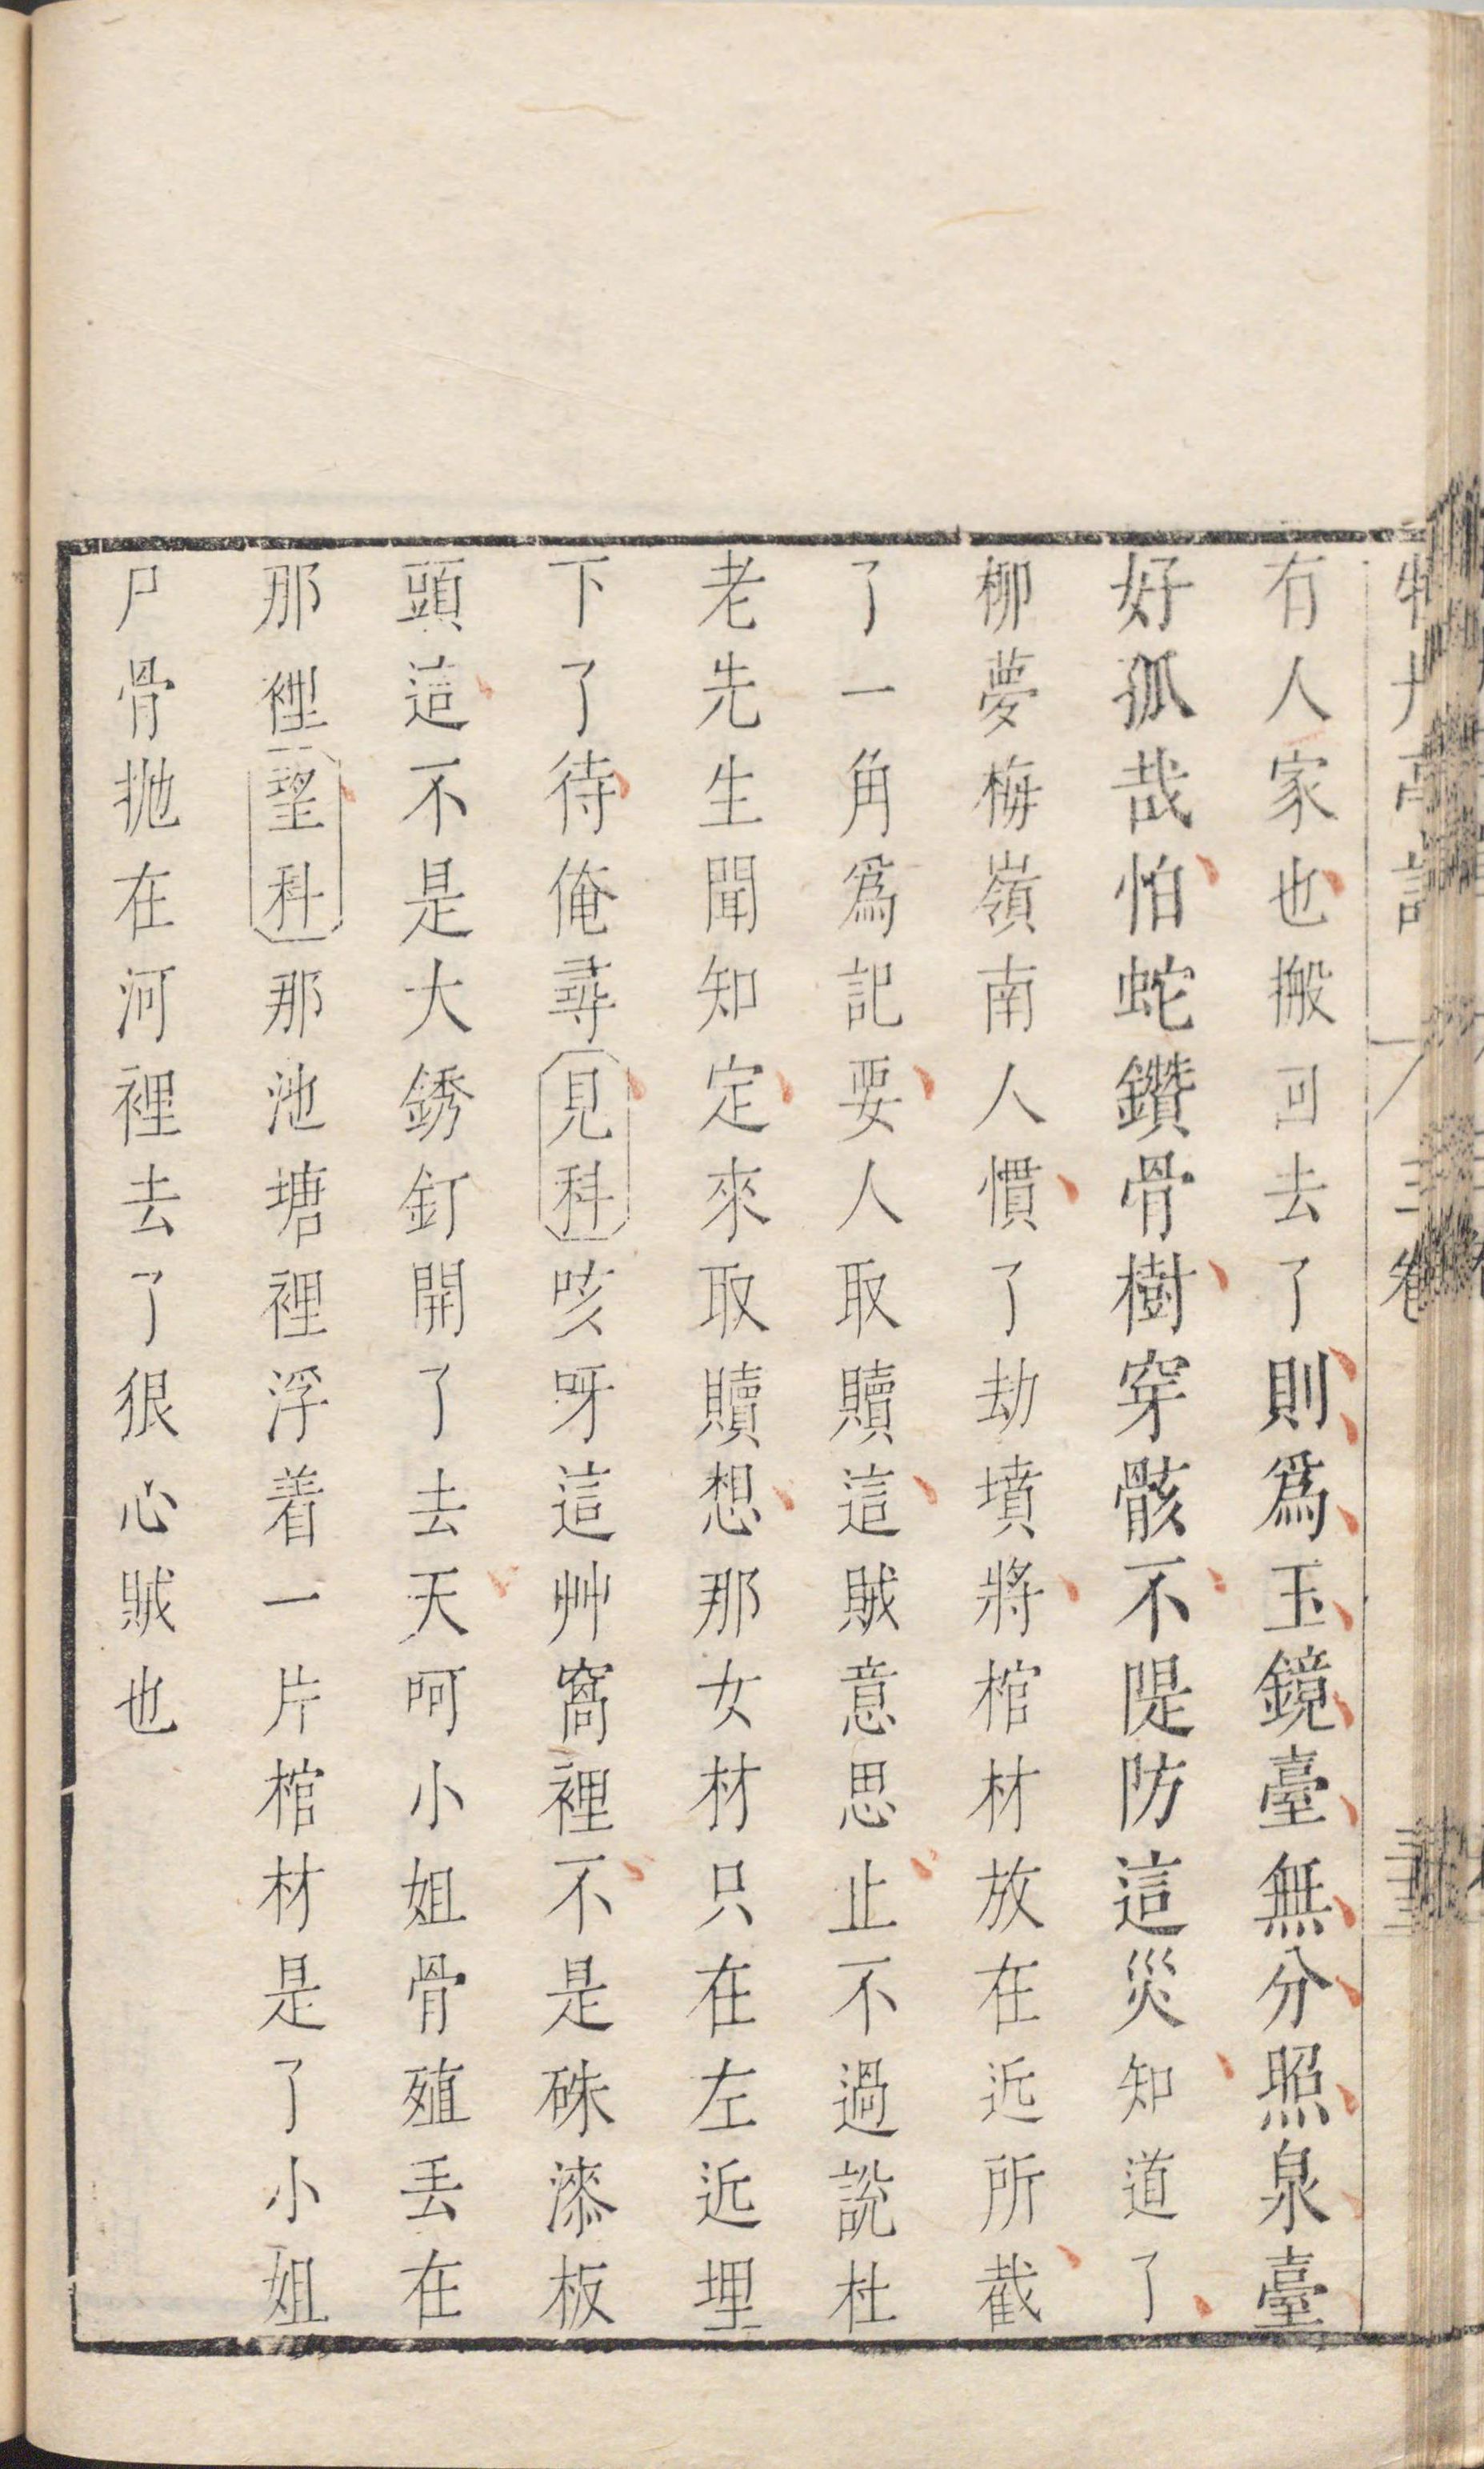 有人家也搬回去了則爲玉鏡臺無分照泉臺
好孤哉怕蛇鑽骨樹穿骸不隄防這災知道了
柳夢梅嶺南人慣了劫墳將棺材放在近所截
了一角爲記要人取贖這賊意思止不過說杜
老先生聞知定來取贖想那女材只在左近埋
下了待俺尋見科咳呀這艸窩裡不是硃漆板
頭這不是大銹釘開了去天呵小姐骨殖丟在
那裡望科那池塘裡浮着一片棺材是了小姐
尸骨拋在河裡去了狠心賊也